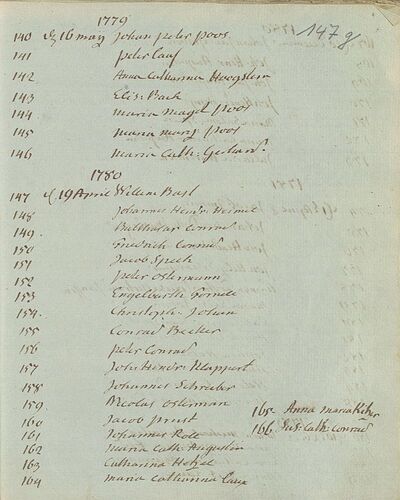 1779
147g
140 16 may Johan peter poos
141 peter lauf
142 Anna Catharina Hoegstein
143 Elis: Back
144 maria magd poos
145 maria marg poos
146 maria Cath: Gerhard.
1780
147 19 April Willem Bast
148 Johannes Henr: Heimel
149. Balthasar Conrad
150 Friedrich Conrad
151 Jacob Speck
152 peter Ostermann
153 Engelbarth
154. Christoph Johan
155 Conrad Becker
156 peter Conrad
157 Joh: Henr: Klappert
158 Johannes Schreiber
159. Nicolas Osterman
165. Anna maria
160 Jacob prust
166. Cath: Conrad
161 Johannes
162 maria Cath: Augustin
163 Catharina Hetzel
164 maria Catharina Laux